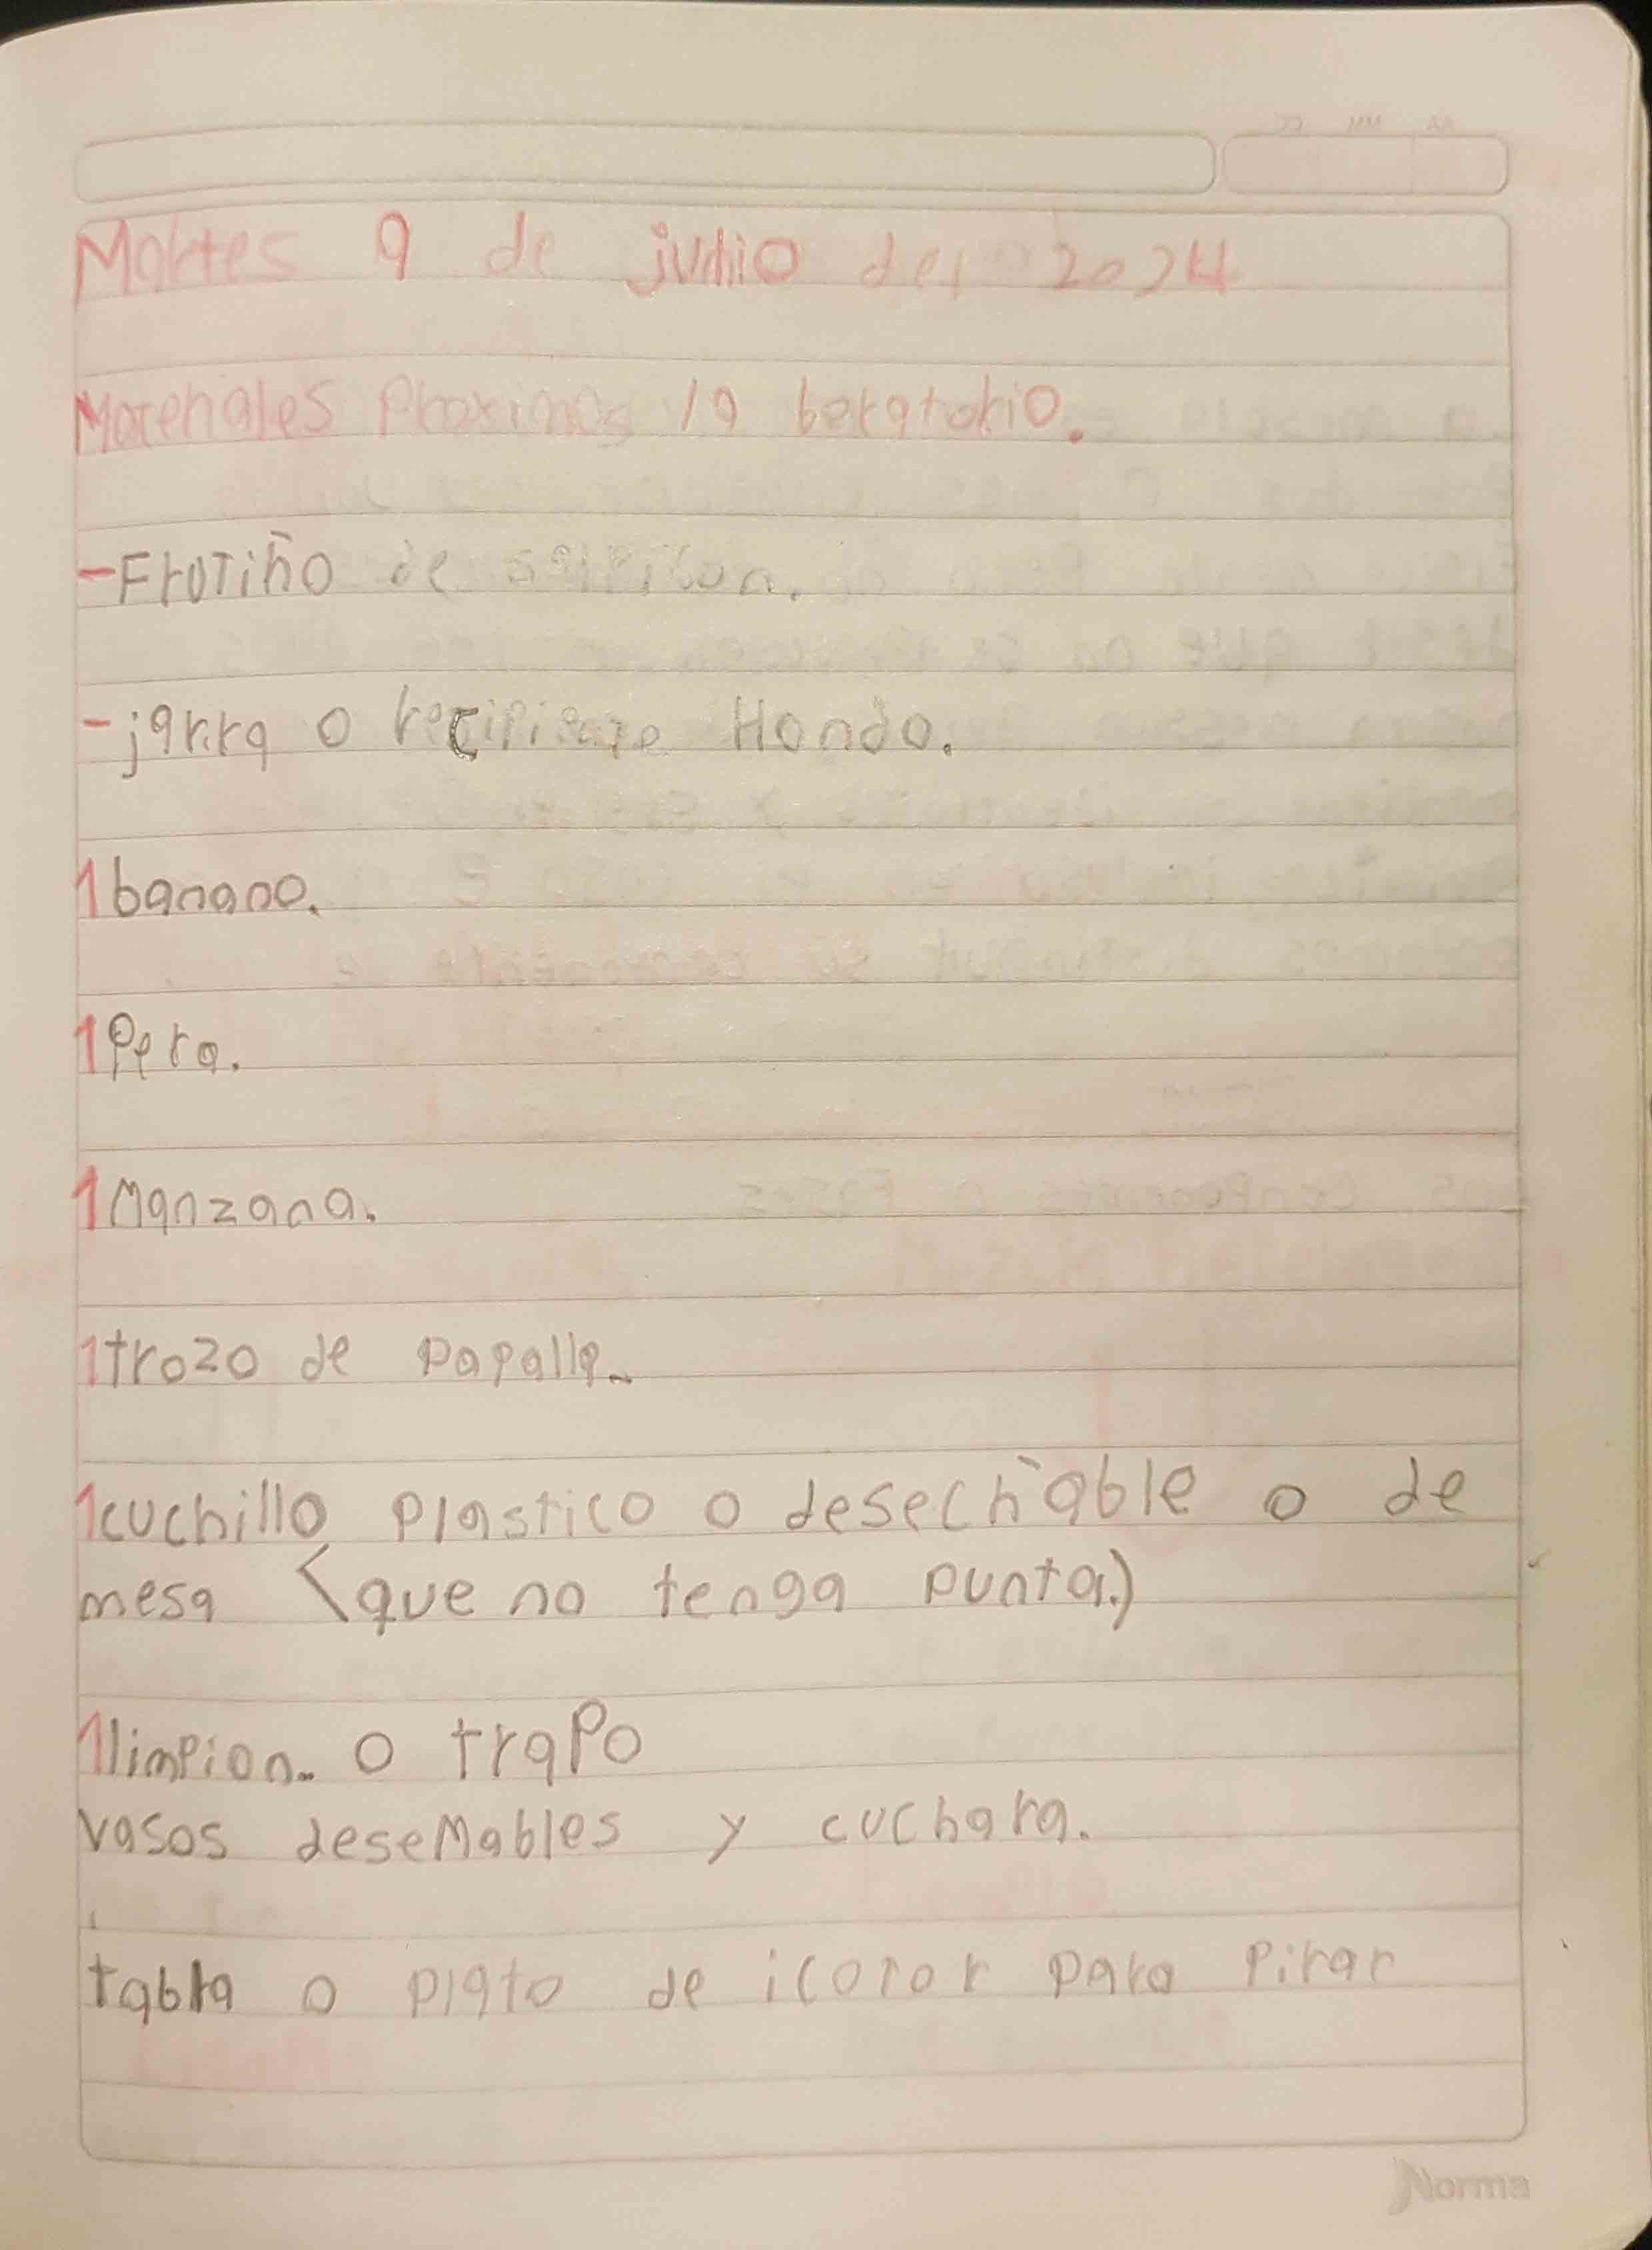 Martes 9 de julio del 2024
Materiales Proximos la boratorio.
-Frutiño de salpicon.
-jarra o recipiente Hondo.
1 banano.
1 Pera.
1 Manzana.
1 trozo de papalla.
1 cuchillo plastico o desechable o de
mesa (que no tenga punta.)
1 limpion. o trapo
vasos deseMables y cuchara.
tabla o plato de icoror para Pirar
Norma